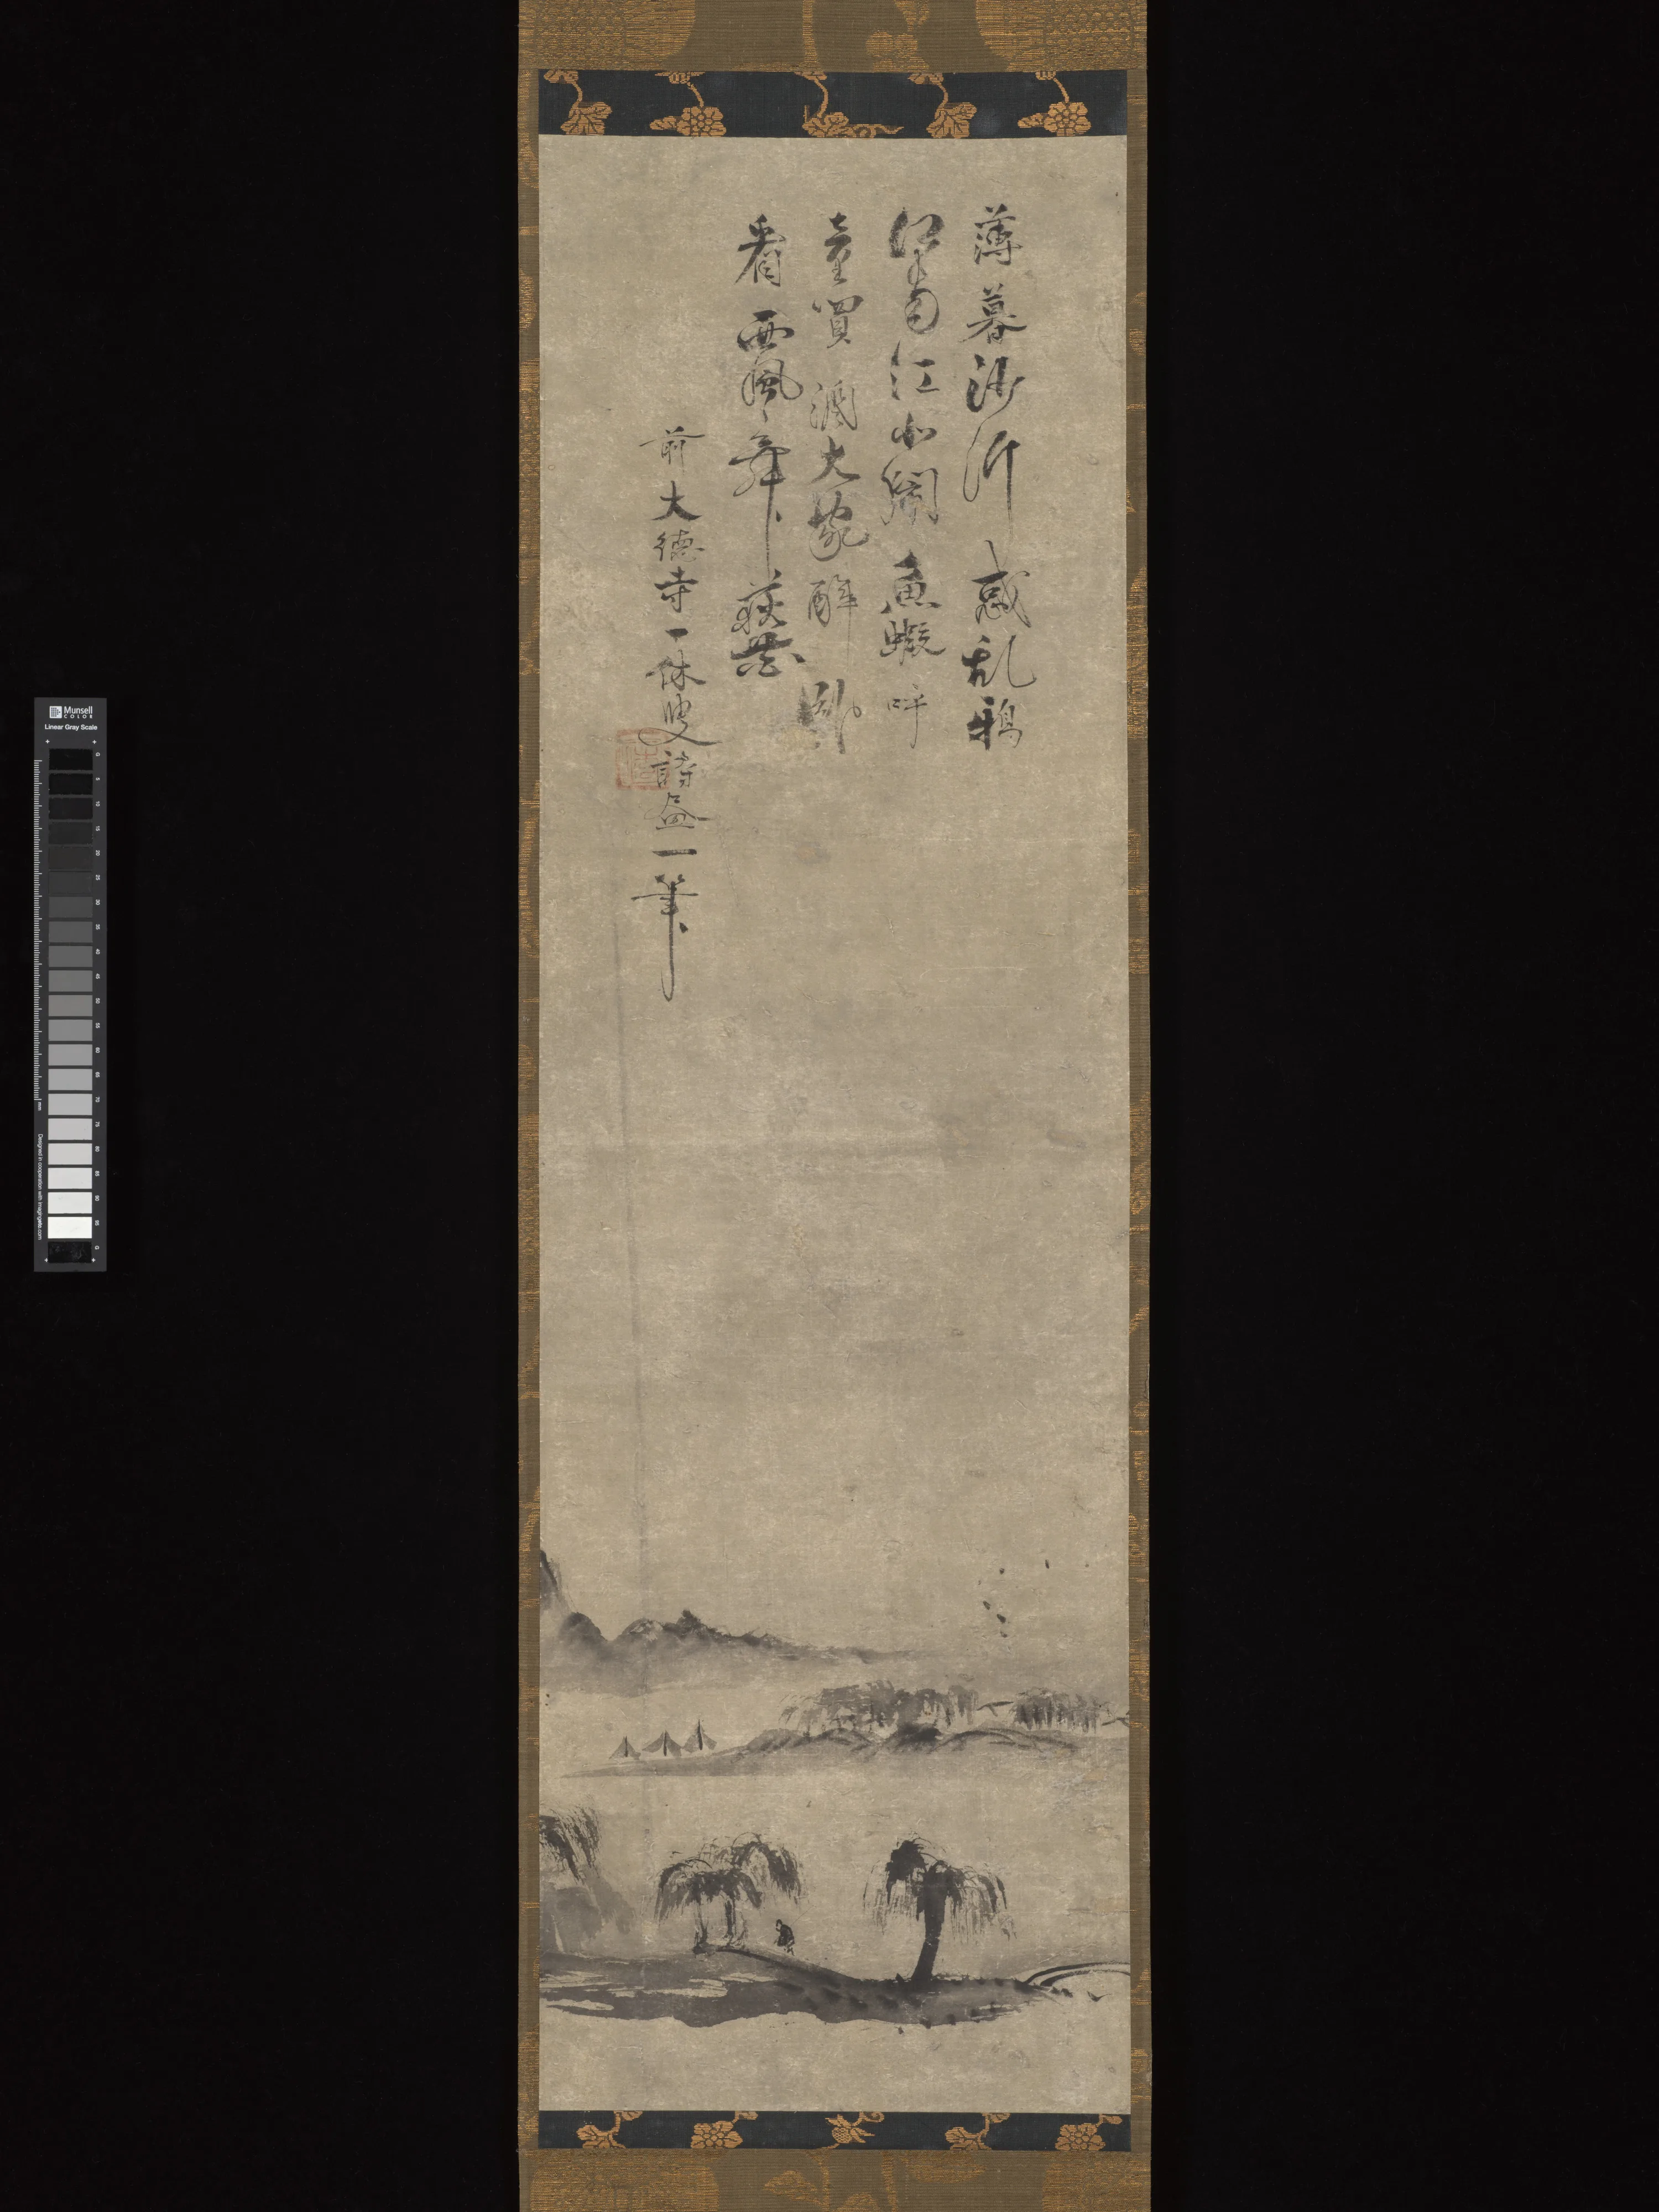 薄暮沙汀惑乱鴉
江南江北閙魚蝦呼
童買酒大家酔臥
看西風舞荻花
前大徳寺一休叟詩画一筆
Munsell
COLOR
Linear Gray Scale